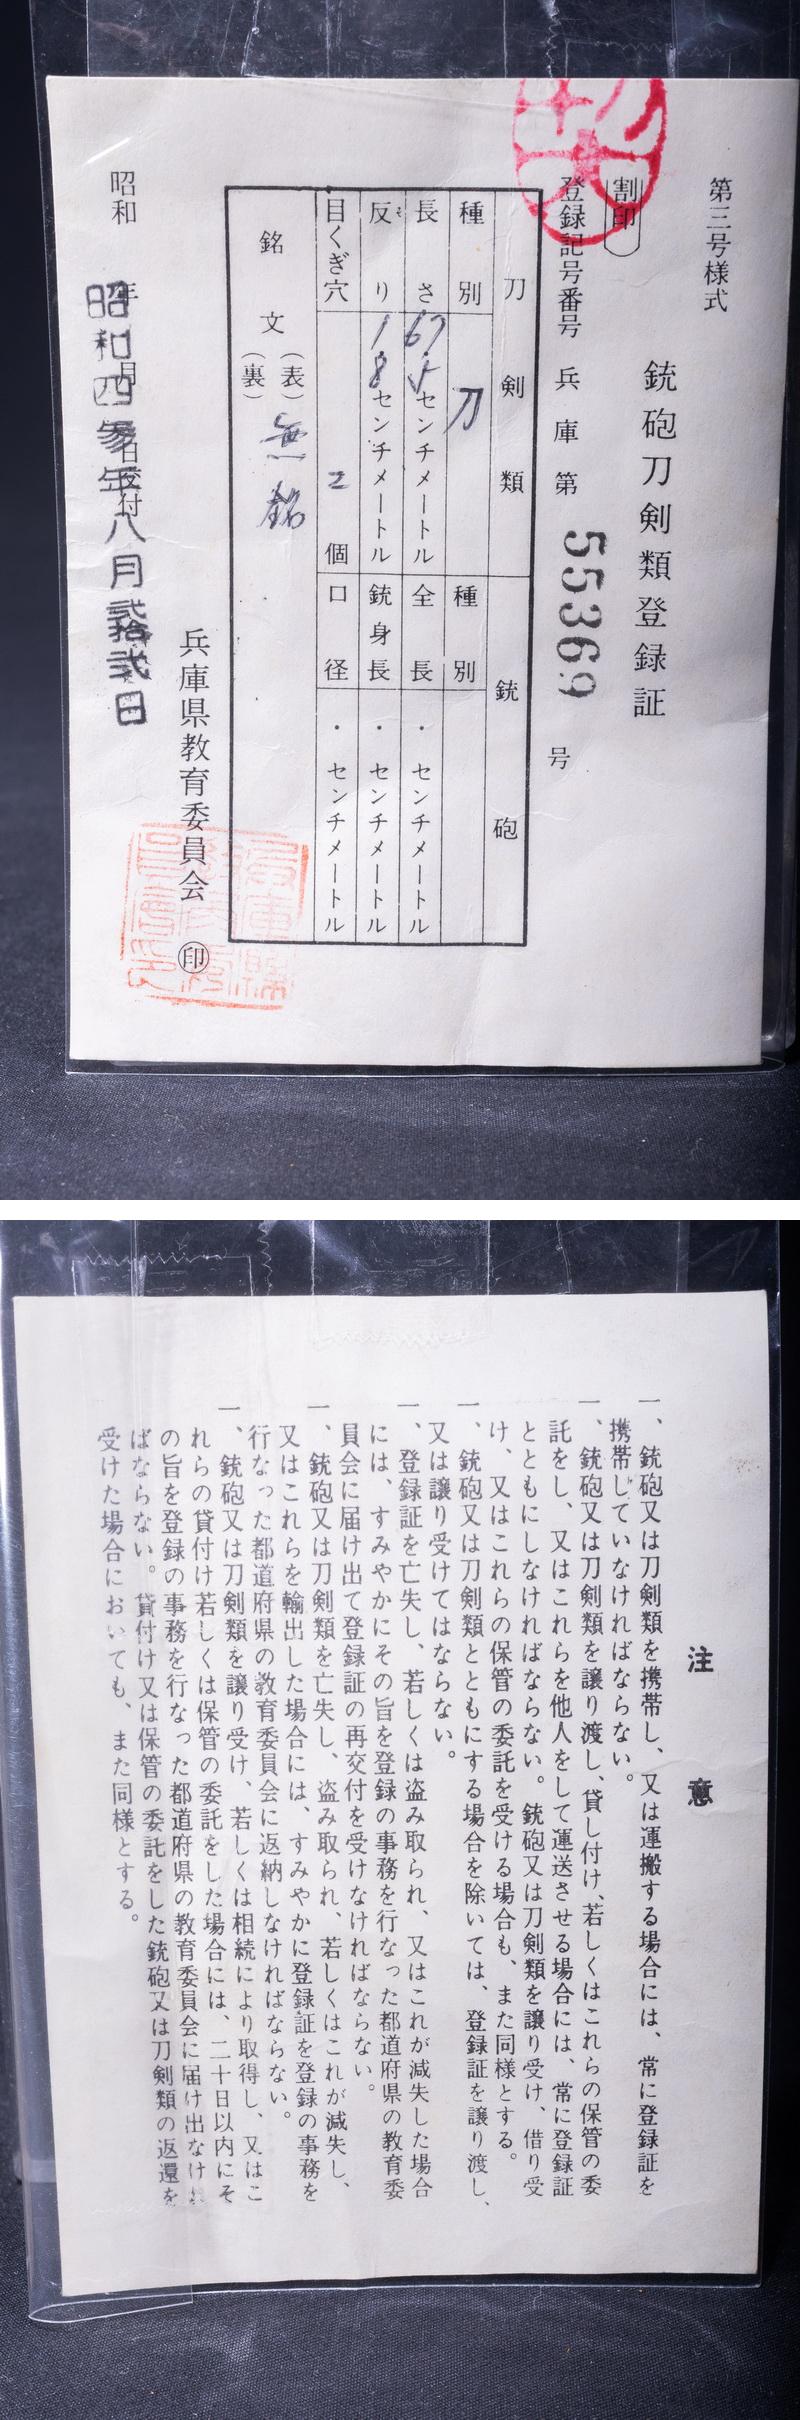 第三号様式
銃砲刀剣類登録証
割印
登録記号番号 兵庫第 55369 号
刀剣類
種別 刀
長さ 67.5 センチメートル
反り 1.8 センチメートル
目くぎ穴 2 個
銘文 (表) 無銘
(裏)
銃砲
種別
全長 . センチメートル
銃身長 . センチメートル
口径 . センチメートル
兵庫県教育委員会 印
昭和 年 月 日交付
昭和四参年八月弐拾弐日
注意
一、銃砲又は刀剣類を携帯し、又は運搬する場合には、常に登録証を
携帯していなければならない。
一、銃砲又は刀剣類を譲り渡し、貸し付け、若しくはこれらの保管の委
託をし、又はこれらを他人をして運送させる場合には、常に登録証
とともにしなければならない。銃砲又は刀剣類を譲り受け、借り受
け、又はこれらの保管の委託を受ける場合も、また同様とする。
一、銃砲又は刀剣類とともにする場合を除いては、登録証を譲り渡し、
又は譲り受けてはならない。
一、登録証を亡失し、若しくは盗み取られ、又はこれが滅失した場合
には、すみやかにその旨を登録の事務を行なった都道府県の教育委
員会に届け出て登録証の再交付を受けなければならない。
一、銃砲又は刀剣類を亡失し、盗み取られ、若しくはこれが滅失し、
又はこれらを輸出した場合には、すみやかに登録証を登録の事務を
行なった都道府県の教育委員会に返納しなければならない。
一、銃砲又は刀剣類を譲り受け、若しくは相続により取得し、又はこ
れらの貸付け若しくは保管の委託をした場合には、二十日以内にそ
の旨を登録の事務を行なった都道府県の教育委員会に届け出なけれ
ばならない。貸付け又は保管の委託をした銃砲又は刀剣類の返還を
受けた場合においても、また同様とする。